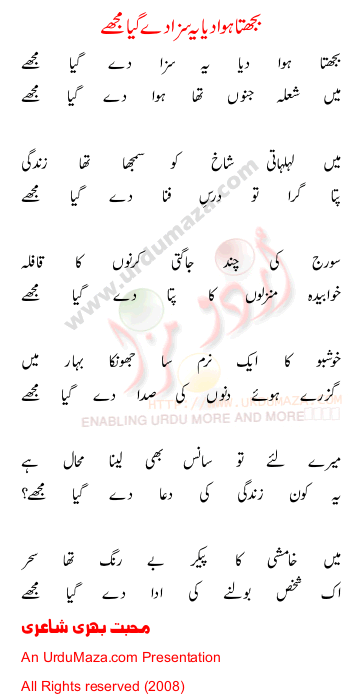 بجھتا ہوا دیا یہ سزا دے گیا مجھے
بجھتا ہوا دیا یہ سزا دے گیا مجھے
میں شعلہ جنوں تھا ہوا دے گیا مجھے
میں لہلہاتی شاخ کو سمجھا تھا زندگی
پتا گرا تو درس فنا دے گیا مجھے
سورج کی چند جاگتی کرنوں کا قافلہ
خوابیدہ منزلوں کا پتا دے گیا مجھے
خوشبو کا ایک نرم سا جھونکا بہار میں
گزرے ہوئے دنوں کی صدا دے گیا مجھے
میرے لئے تو سانس بھی لینا محال ہے
یہ کون زندگی کی دعا دے گیا مجھے؟
میں خامشی کا پیکر بے رنگ تھا سحر
اک شخص بولنے کی ادا دے گیا مجھے
www.urdumaza.com
اُردو مزا
HTTP://WWW.UrduMaza.com
ENABLING URDU MORE AND MORE
محبت بھری شاعری
An UrduMaza.com Presentation
All Rights reserved (2008)